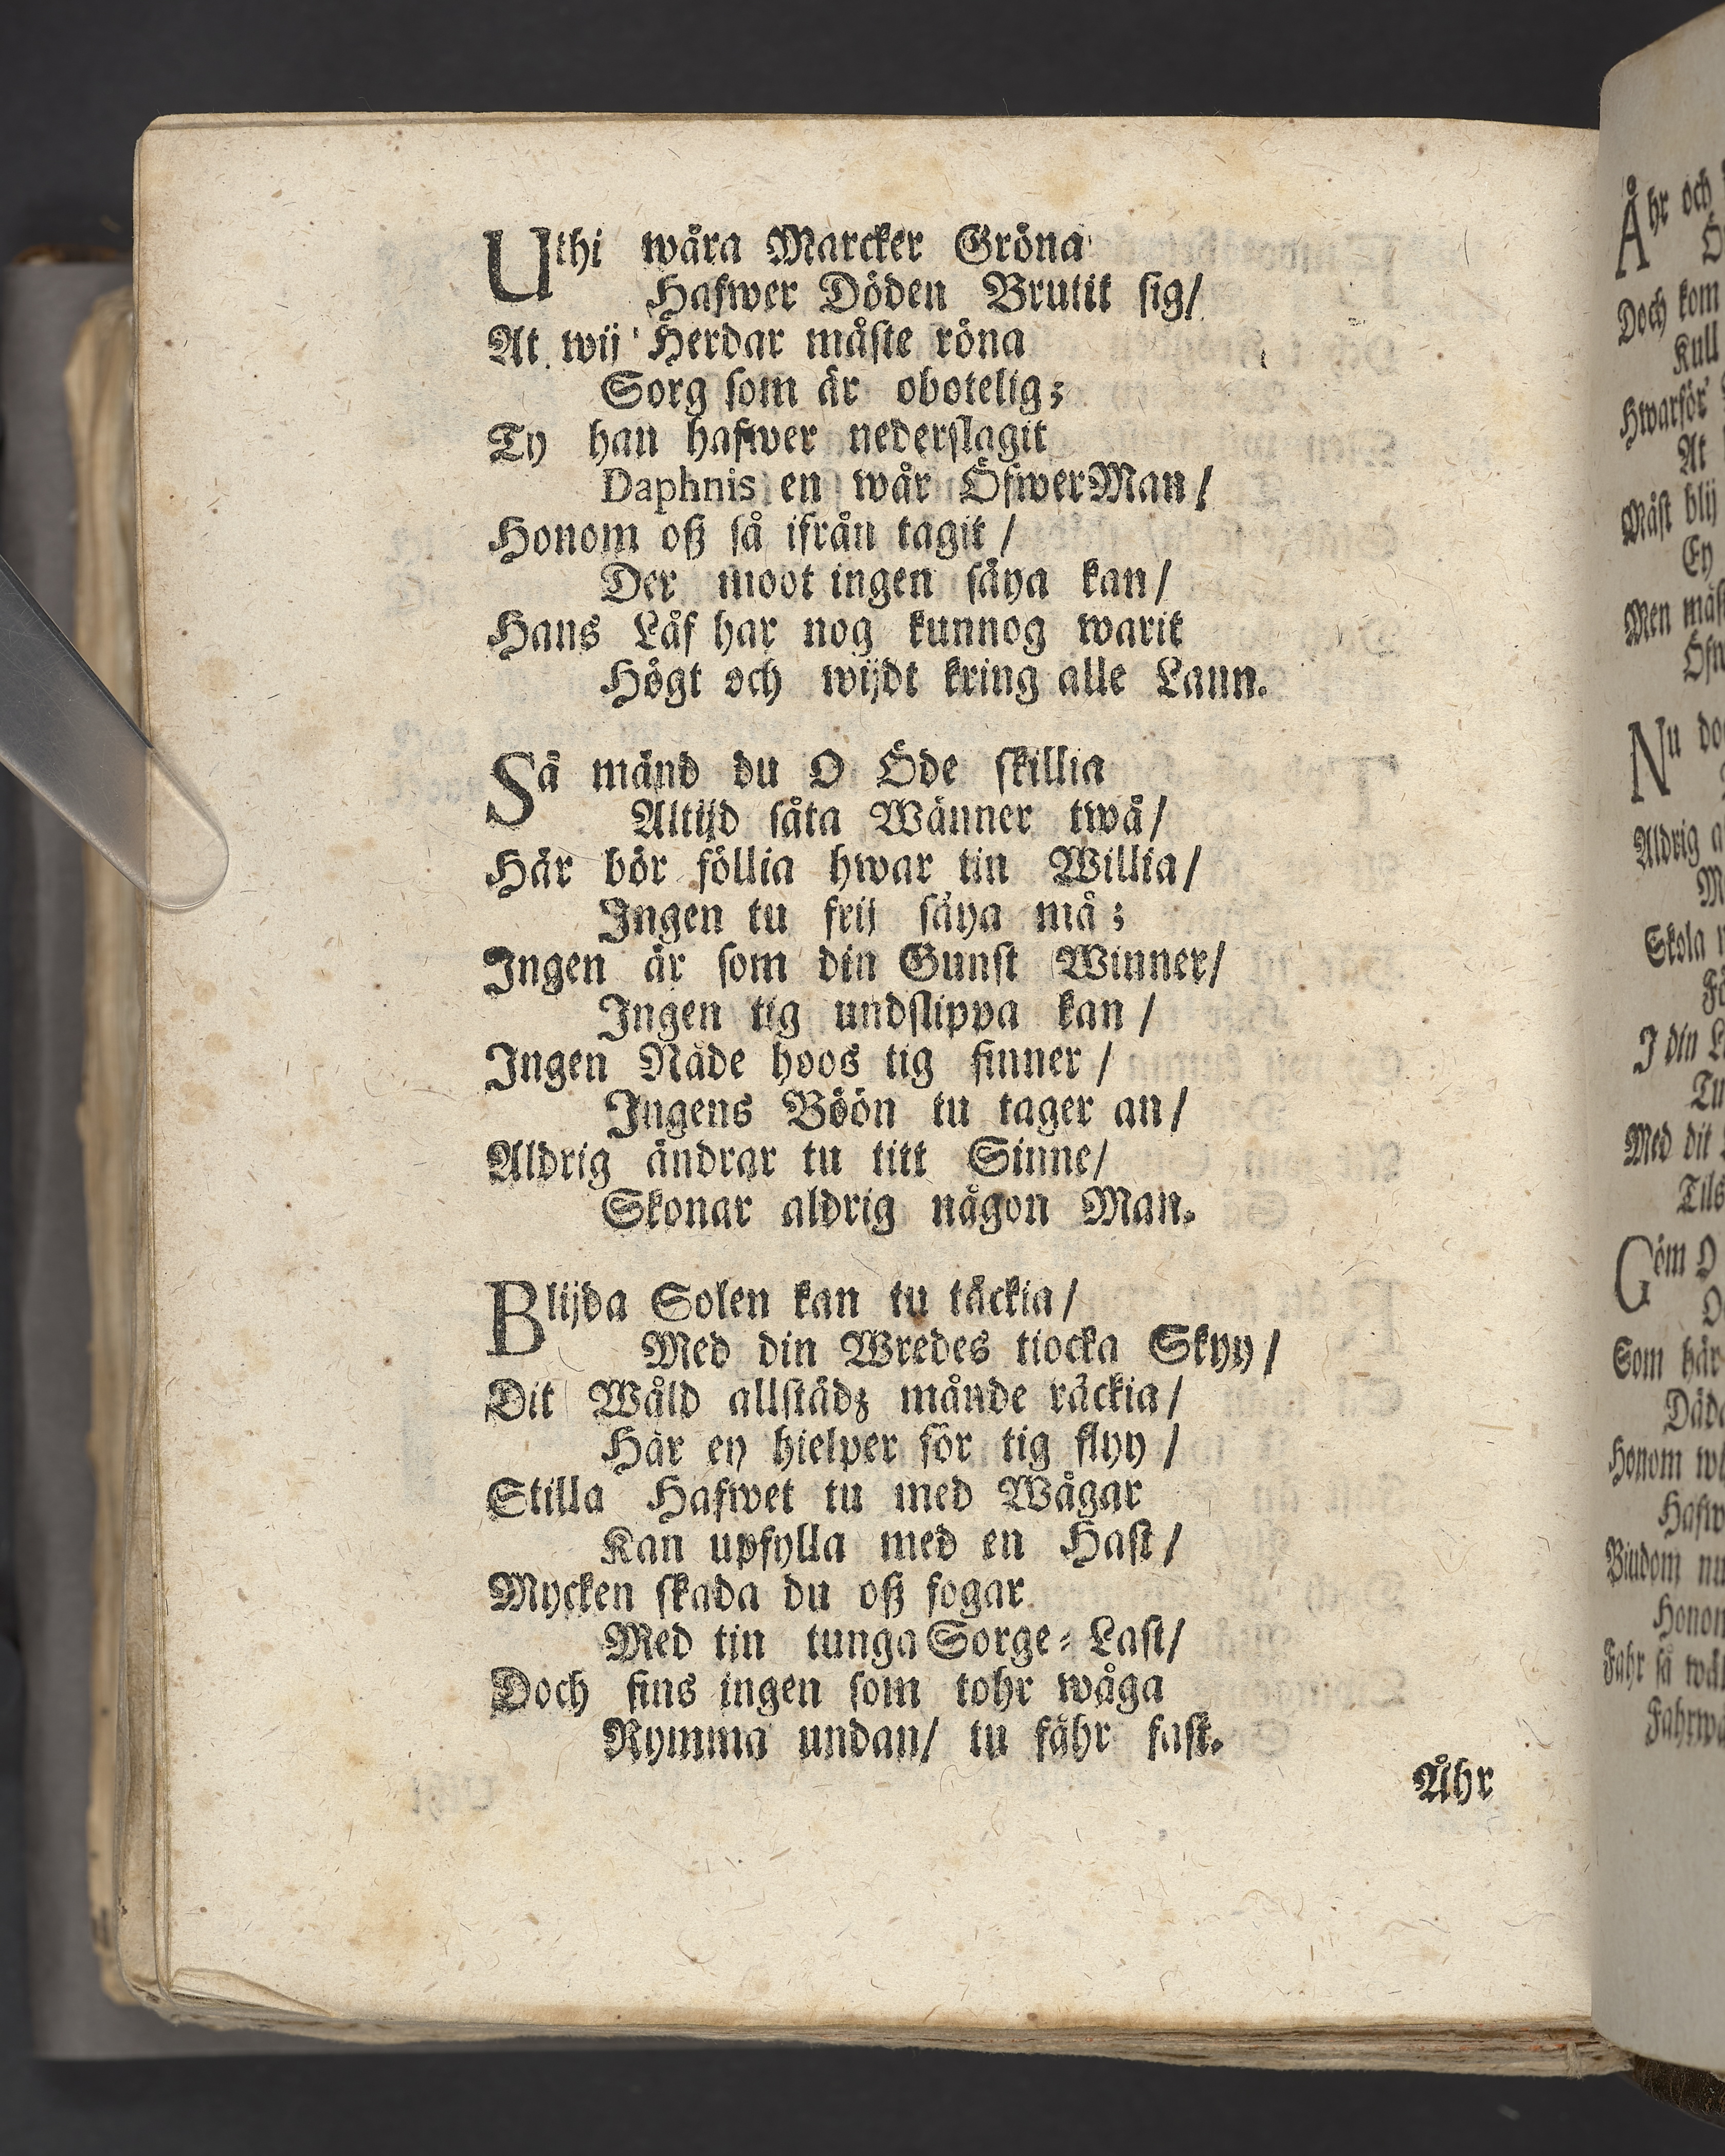 Uthi wåra Marcker Gröna
Hafwer Döden Brutit sig/
At wij Herdar måste röna
Sorg som är obotelig;
Ty han hafwer nederslagit
Daphnis en wår ÖfwerMan/
Honom oß så ifrån tagit/
Der moot ingen säya kan/
Hans Låf har nog kunnog warit
Högt och wijdt kring alle Lann.
Så mänd du O Öde skillia
Altijd såta Wänner twå/
Här bör föllia hwar tin Willia/
Ingen tu frij säya må;
Ingen är som din Gunst Winner/
Ingen tig undslippa kan/
Ingen Nåde hoos tig finner/
Ingens Böön tu tager an/
Aldrig ändrar tu titt Sinne/
Skonar aldrig någon Man.
Blijda Solen kan tu täckia/
Med din Wredes tiocka Skyy/
Dit Wåld allstädz månde räckia/
Här ey hielper för tig flyy/
Stilla Hafwet tu med Wågar
Kan upfylla med en Hast/
Mycken skada du oß fogar
Med tin tunga Sorge-Last/
Doch fins ingen som tohr wåga
Rymma undan/ tu fåhr fast.
Åhr
Åhr och
Doch kom
Kull
Hwarför
At
Måst blij
Ey
Men
Nu
Aldrig
Skola
I din
Med dit
Göm O
Som här
Honom